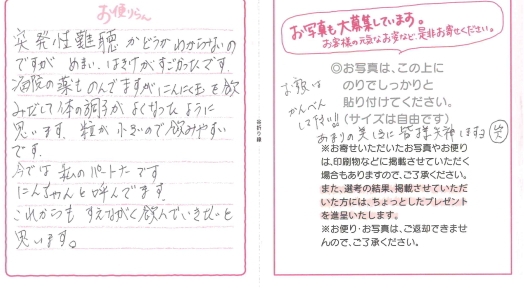 お便りらん
突発性難聴かどうかわからないの
ですが めまい、はきけがすごかったです。
病院の薬ものんでますがにんにく玉を飲
みだして体の調子がよくなったように
思います。粒が小さいので飲みやすい
です。
今では私のパートナーです
にんちゃんと呼んでます。
これからも すえながく飲んでいきたいと
思います。
谷折り線
お写真も大募集しています。
お客様の元気なお姿など、是非お寄せください。
◎お写真は、この上に
のりでしっかりと
貼り付けてください。
(サイズは自由です)
お顔は
かんべん
して付!!
あまりの美しさに皆様失神しますヨ(笑)
※お寄せいただいたお写真やお便り
は、印刷物などに掲載させていただく
場合もありますので、ご了承ください。
また、選考の結果、掲載させていただ
いた方には、ちょっとしたプレゼント
を進呈いたします。
※お便り・お写真は、ご返却できませ
んので、ご了承ください。